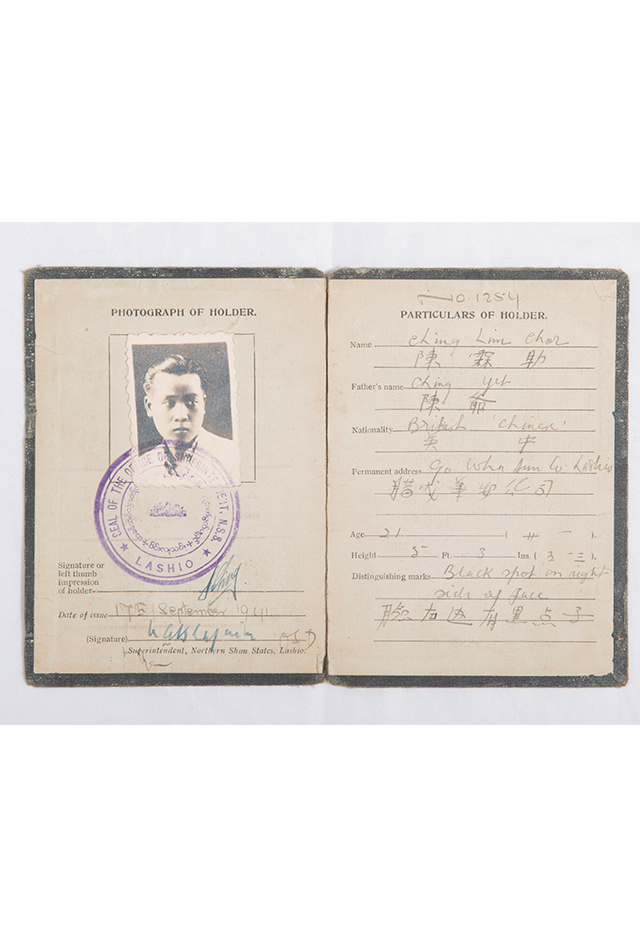 PHOTOGRAPH OF HOLDER.
SEAL OF THE OFFICE OF SUPERINTENDENT, N.S.S.
★ LASHIO ★
Signature or
left thumb
impression
of holder
Date of issue 17th September 1941
(Signature)
Superintendent, Northern Shan States, Lashio.
No. 1254
PARTICULARS OF HOLDER.
Name Ching Lim Chor
陳 霖 助
Father's name Ching
陳
Nationality British 'Chinese'
英 中
Permanent address Co. Lashio
腊戌華安公司
Age 21 ( 廿一 ).
Height 5 Ft. 3 Ins. ( 三 ).
Distinguishing marks Black spot on right
side of face
臉右边有黑点子